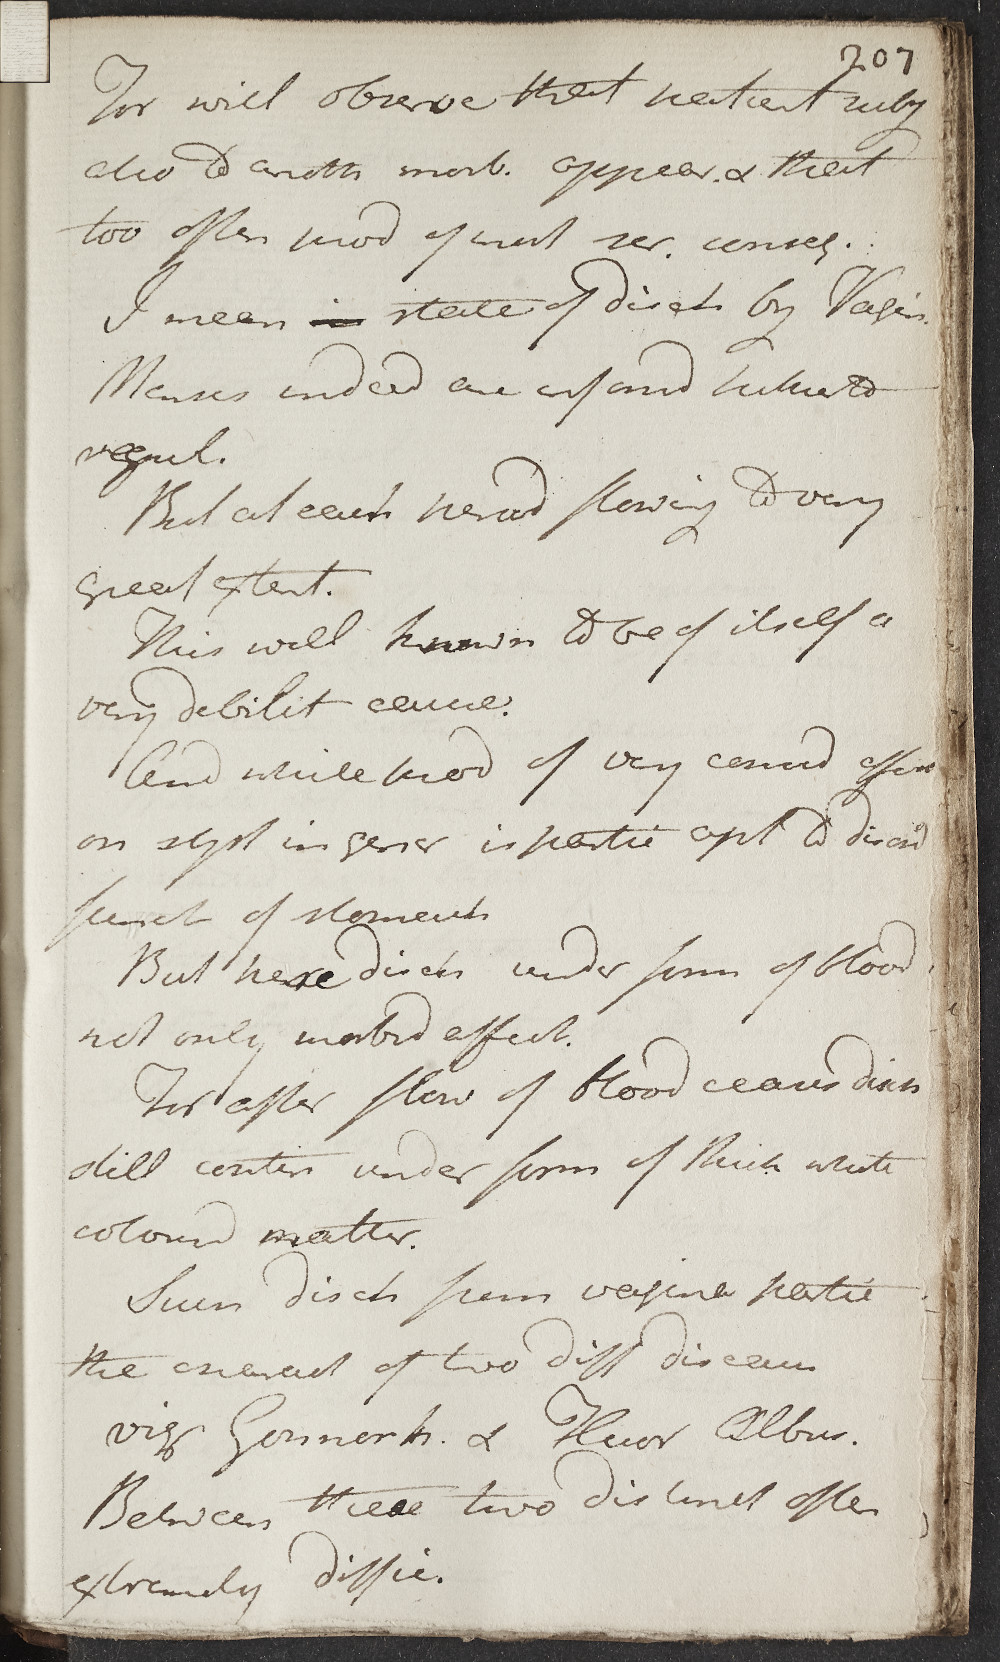 207
For will observe that patient subj
also to anoth morb. appear. & that
too often prod of most ser. conseq.
I mean in state of disch by Vagin.
Menses indeed are inform'd hitherto
regul.
But at each period flowing to very
great extent.
This well known to be of itself a
very debilit cause.
And while prod of very consid effect
on syst in gener is partic apt to disord
funct of stomach
But here disch under form of blood
not only morbid affect.
For after flow of blood ceases disch
still contin under form of thick white
colourd matter.
Such disch from vagina partic
the charact of two diff diseases
viz Gonnorh. & Fluor Albus.
Between these two distinct often
extremely diffic.